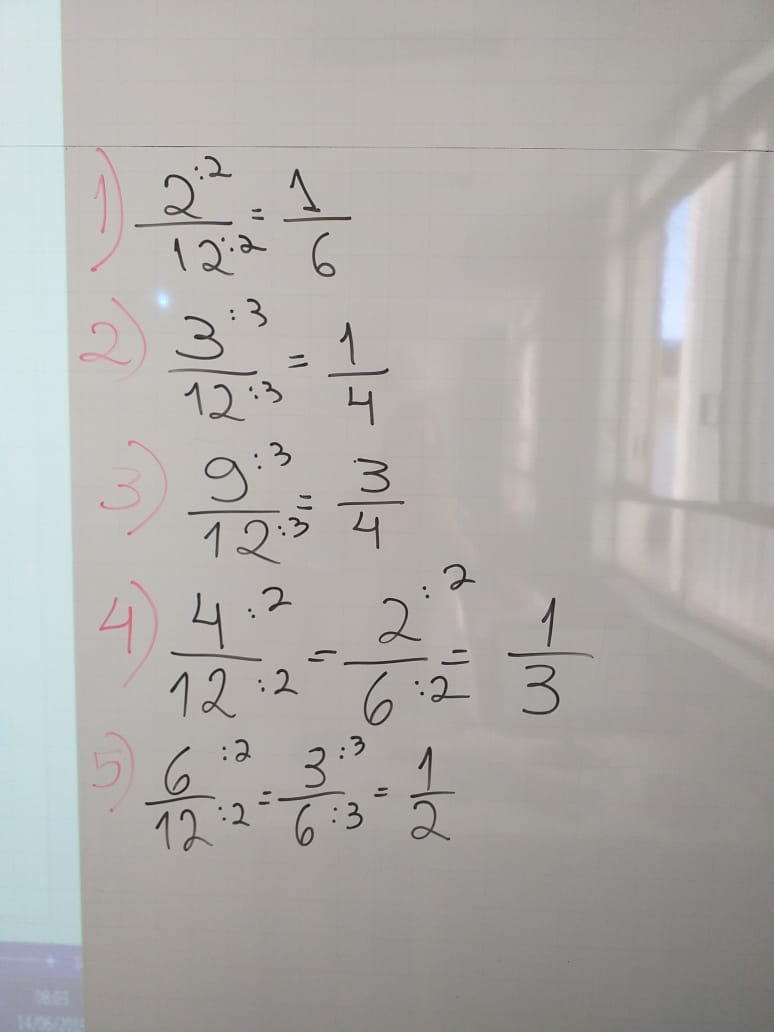 1) 2:2/12:2 = 1/6
2) 3:3/12:3 = 1/4
3) 9:3/12:3 = 3/4
4) 4:2/12:2 = 2:2/6:2 = 1/3
5) 6:2/12:2 = 3:3/6:3 = 1/2
08:03